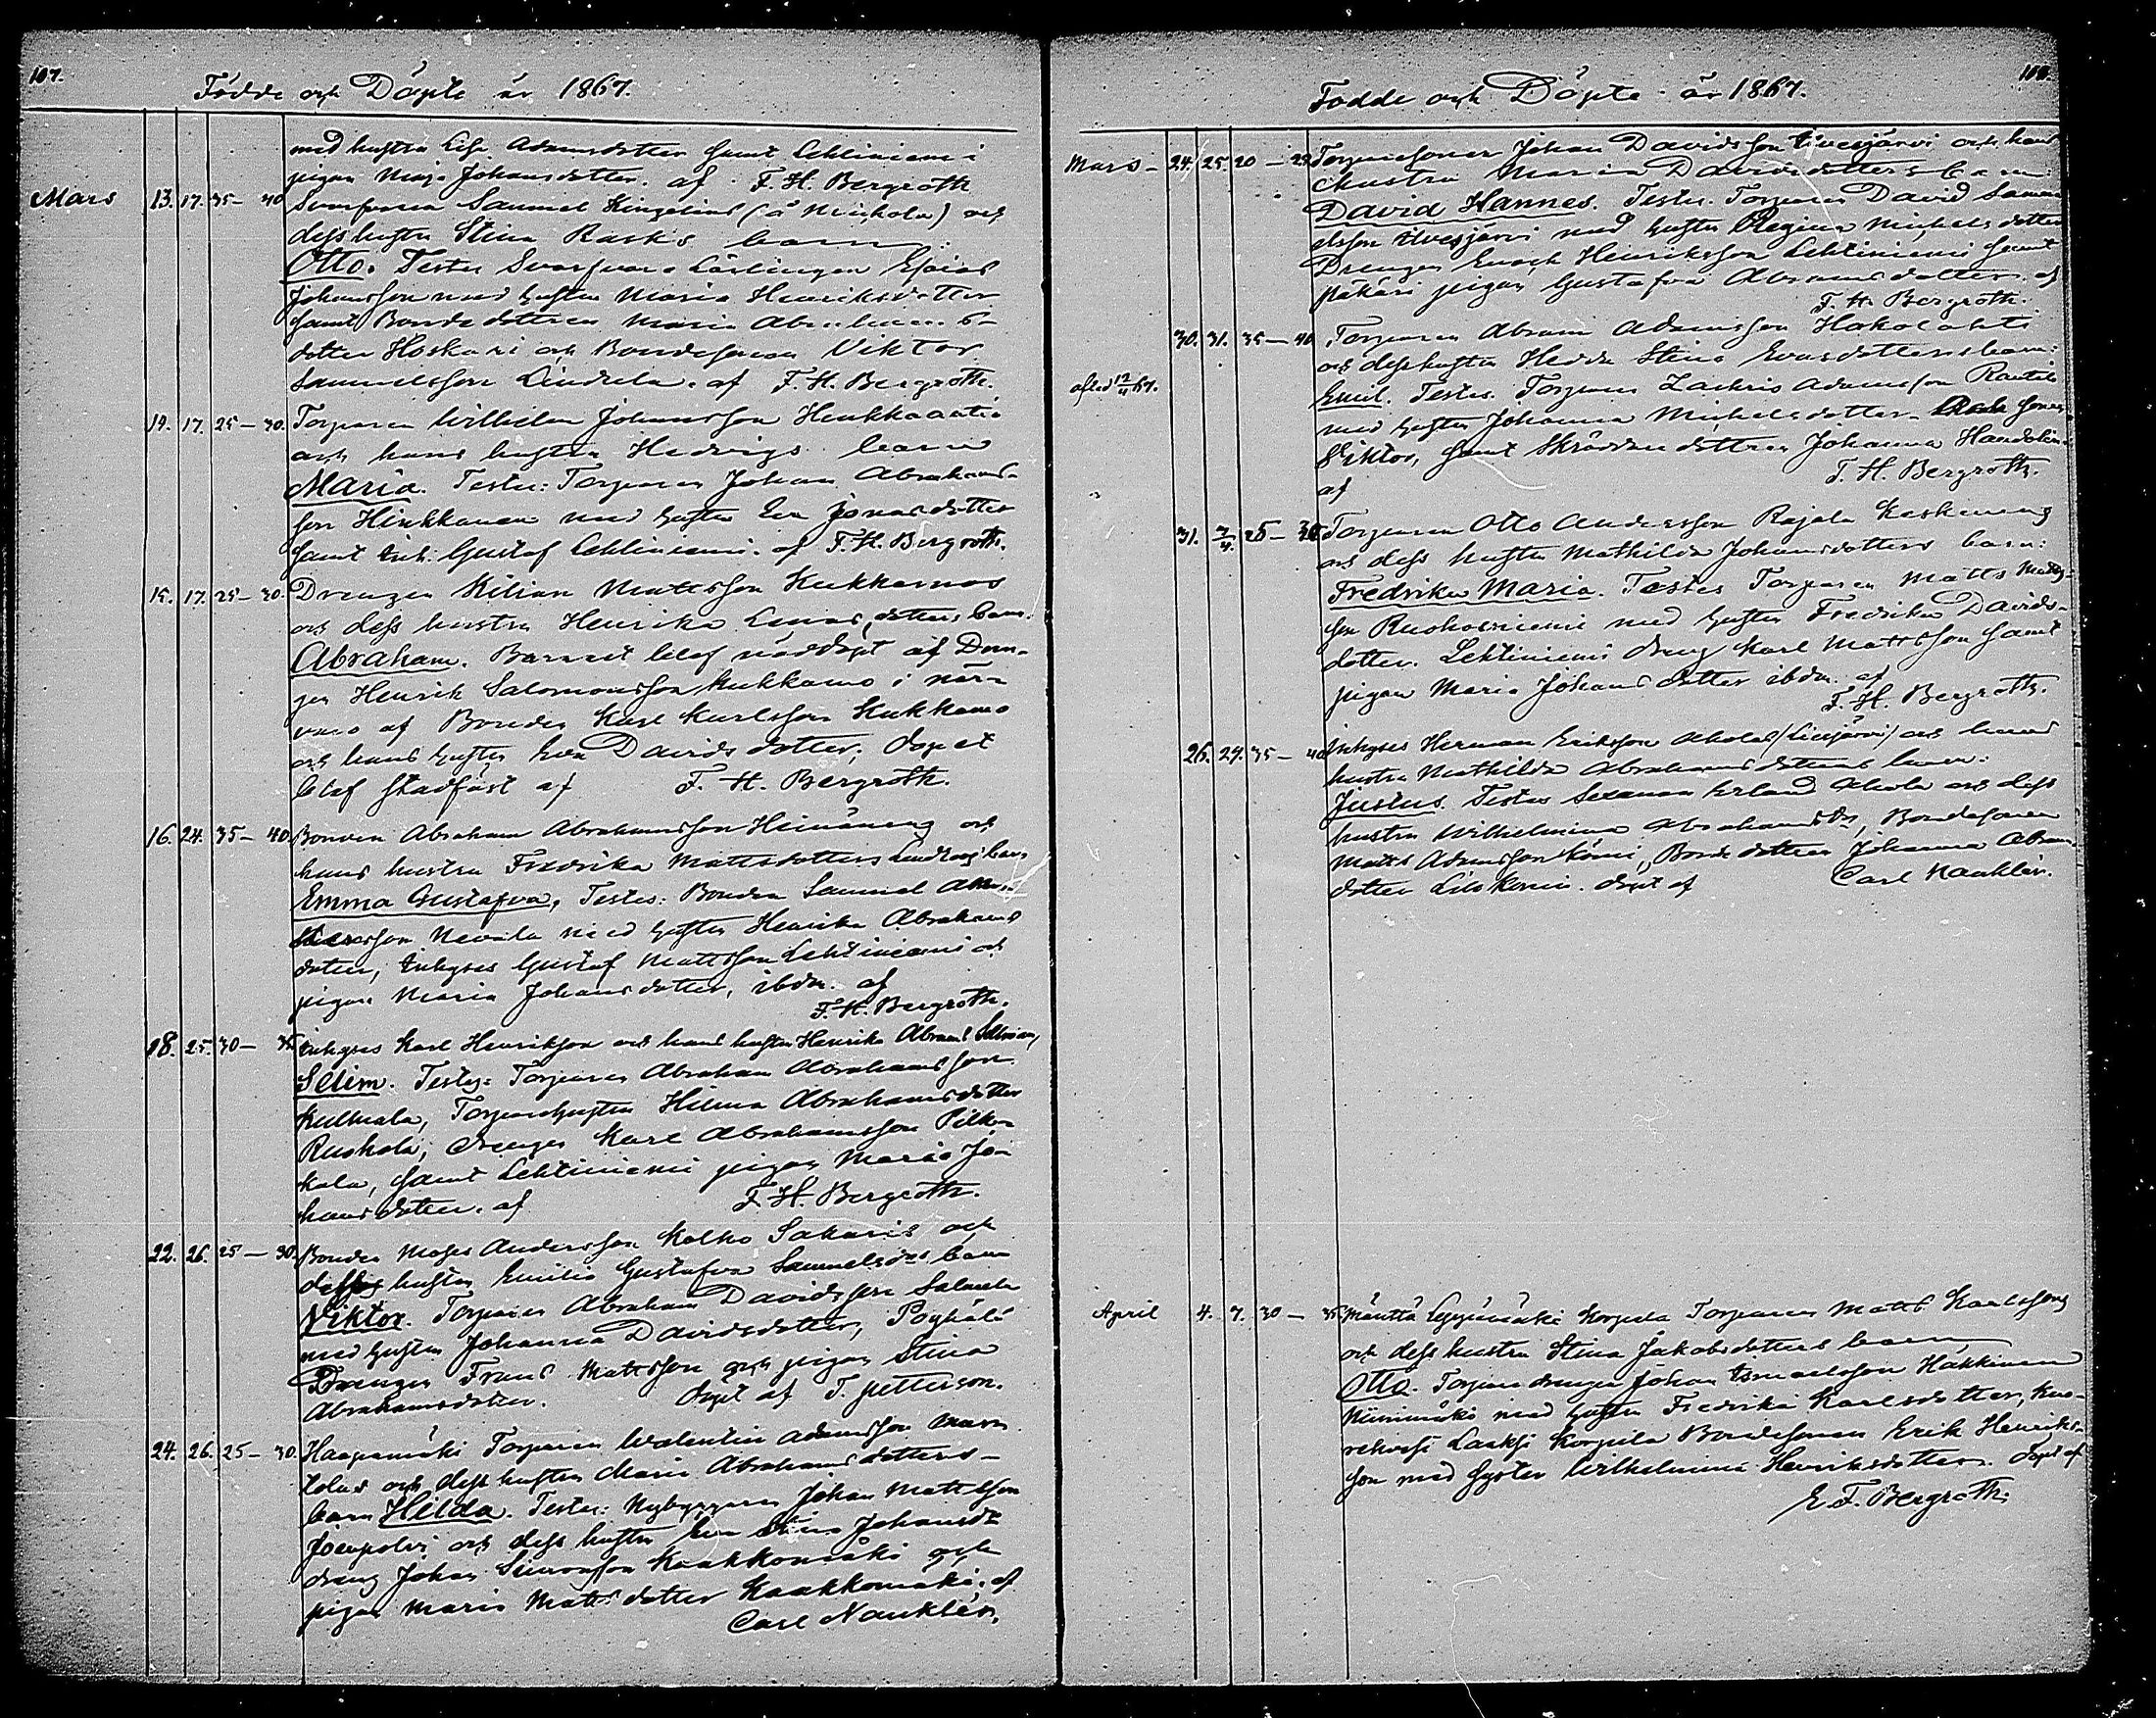 107.
Födde och Döpte år 1867.
med hustru Lisa Adamsdotter samt Lehtiniemi
pigan Maja Johansdotter. af F. H. Bergroth
Mars 13. 17. 35- 40 Svarfvaren Samuel Kingelins (å Nickola) och
dess hustru Stina Rasks barn:
Otto. Testes Svarfvare Lärlingen Esaias
Johansson med hustru Maria Henriksdotter
samt Bondedottren Maria
dotter Hoskari och Bondesonen Viktor
Samuelsson Lindula. af F. H. Bergroth.
14. 17. 25-30. Torparen Wilhelm Johansson
och hans hustru Hedvigs barn
Maria. Testes: Torparen Johan Abrahams-
son Hinkkanen med hustru Eva Jonasdotter
samt Inh: Gustaf Lehtiniemi. af F. H. Bergroth.
15. 17. 25-30. Drengen Kilian Mattsson Kukkamos
och dess hustru Henrika dotters barn
Abraham. Barnet blef nöddöpt af Dren-
gen Henrik Salomonsson Kukkamo i när-
varo af Bonden Karl Karlsson Kukkamo
och hans hustru Eva Davidsdotter; dopet
blef stadfäst af F. H. Bergroth.
16. 24. 35-40. Bonden Abraham Abrahamsson och
hans hustru Fredrika Mattsdotters barn
Emma Gustafva, Testes: Bonden Samuel
Nevala med hustru Henrika Abrahams
dotter, Inhyses Gustaf Mattsson Lehtiniemi och
pigan Maria Johansdotter, ibdm. af
F. H. Bergroth.
18. 25. 30- 35 Inhyses Karl Henriksson och hans hustru Henrika Abrams
Selim. Testes: Torparen Abraham Abrahamsson
Kulmala, Torparehustrun Hilma Abrahamsdotter
Ruokola, drengen Karl Abrahamsson Pilk-
kala, samt Lehtiniemi pigan Maria Jo-
hansdotter. af F. H. Bergroth.
22. 26. 25-30. Bonden Moses Andersson Kolho Sakaris och
hustru Emilia Gustafva Samuelsdrs barn
Viktor. Torparen Abraham Davidsson Salmela
med hustru Johanna Davidsdotter, Poyhälä
Drengen Frans Mattsson och pigan Stina
Abrahamsdotter. Döpt af T. Petterson.
24. 26. 25-30. Haapamäki Torparen Walentin Adamsson
och dess hustru Maria Abrahamsdotters-
barn Hilda. Testes: Nybyggaren Johan Mattsson
Joenpolvi och dess hustru Eva Stina Johansdr
dreng Johan Simonsson Kaakkomäki och
pigan Maria Mattsdotter Kaakkomäki. af
Carl Nauklér.
Födde och Döpte år 1867.
Mars- 24. 25. 20 - Torparesonen Johan Davidsson Ilvesjärvi och hans
hustru Maria Davidsdotters barn:
David Hannes. Testes. Torparen David Samu-
elsson Ilvesjärvi med hustru Regina Michelsdotter
Drengen Enoch Henriksson Lehtiniemi samt
pigan Gustafva Abramsdotter. af
F. H. Bergroth.
30. 31. 35-40 Torparen Abram Adamsson Hokolahti
och dess hustru Hedda Stina Evasdotters barn:
afled 12/4 67. Emil. Testes. Torparen Zachris Adamsson Rautila
med hustru Johanna Michelsdotter- sonen
Viktor, samt Skräddaredottren Johanna Handolin
af F. H. Bergroth.
31. 7/4. 25-30 Torparen Otto Andersson Rajala Keskinens
och dess hustru Mathilda Johansdotters barn:
Fredrika Maria. Testes Torparen Matts Matts-
son Ruokosniemi med hustru Fredrika Davids-
dotter. Lehtiniemi dreng Karl Mattsson samt
pigan Maria Johansdotter ibdm. af
F. H. Bergroth.
26. 29. 35-40 Inhyses Herman Eriksson Aholas (Liesjärvi) och hans
hustru Mathilda Abrahamsdotters barn:
Justus. Testes Sexman Erland Ahola och dess
hustru Wilhelmina Abrahamsdr, Bondesonen
Matts Adamsson Kömi, Bondedottren Johanna Abrams
dotter döpt af Carl Nauklér.
April 4. 7. 30 - 35. Mänttä Korpela Torparen Matts Karlssons
och dess hustru Stina Jakobsdotters barn
Otto. Torparedrengen Johan Ismaelsson Häkkinen
Niinimäki med hustru Fredrika Karlsdotter,
Laaksi Korpela Bondesonen Erik Henriks-
son med Syster Wilhelmina Henriksdotter. Döpt af
E. F. Bergroth.